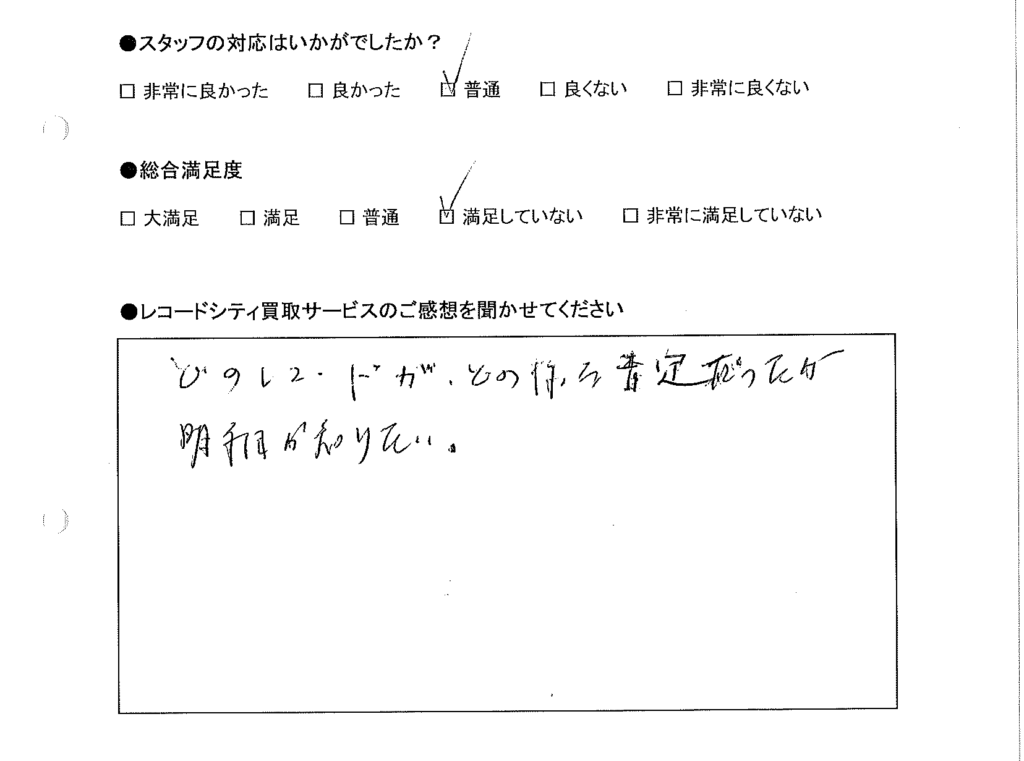 ●スタッフの対応はいかがでしたか？
□ 非常に良かった □ 良かった ☑ 普通 □ 良くない □ 非常に良くない
●総合満足度
□ 大満足 □ 満足 □ 普通 ☑ 満足していない □ 非常に満足していない
●レコードシティ買取サービスのご感想を聞かせてください
どのレコードが、どの様な査定だったか
明細が知りたい。